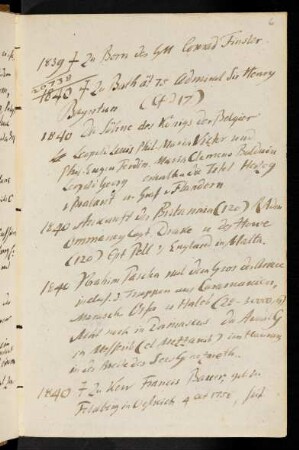 6
1839 † Zu Bern der GM Conrad Finsler.
1840 † Zu Bath ät 75 Admiral Sir Henry
Bayntun (G 17)
1840 Die Söhne des Königs der Belgier
Leopold Louis Phil. Maria Victor und
Phil. Eugen Ferdin. Maria Clemens Balduin
Leopold Georg erhalten die Titel Herzog
v Brabant u Graf v Flandern
1840 Ankunft der Britannia (120)
Ommaney Capt. Drake u der Howe
(120) Capt Pell v England in Malta.
1840 Ibrahim Pascha mit dem Gros der Armee
incl. d. Truppen aus Caramanien,
Marasch Orfa u Haleb
in Damascus die
1840 † Zu Kew Francis Bauer, geb zu
Feldsberg in Oestreich 4 Oct 1758, seit